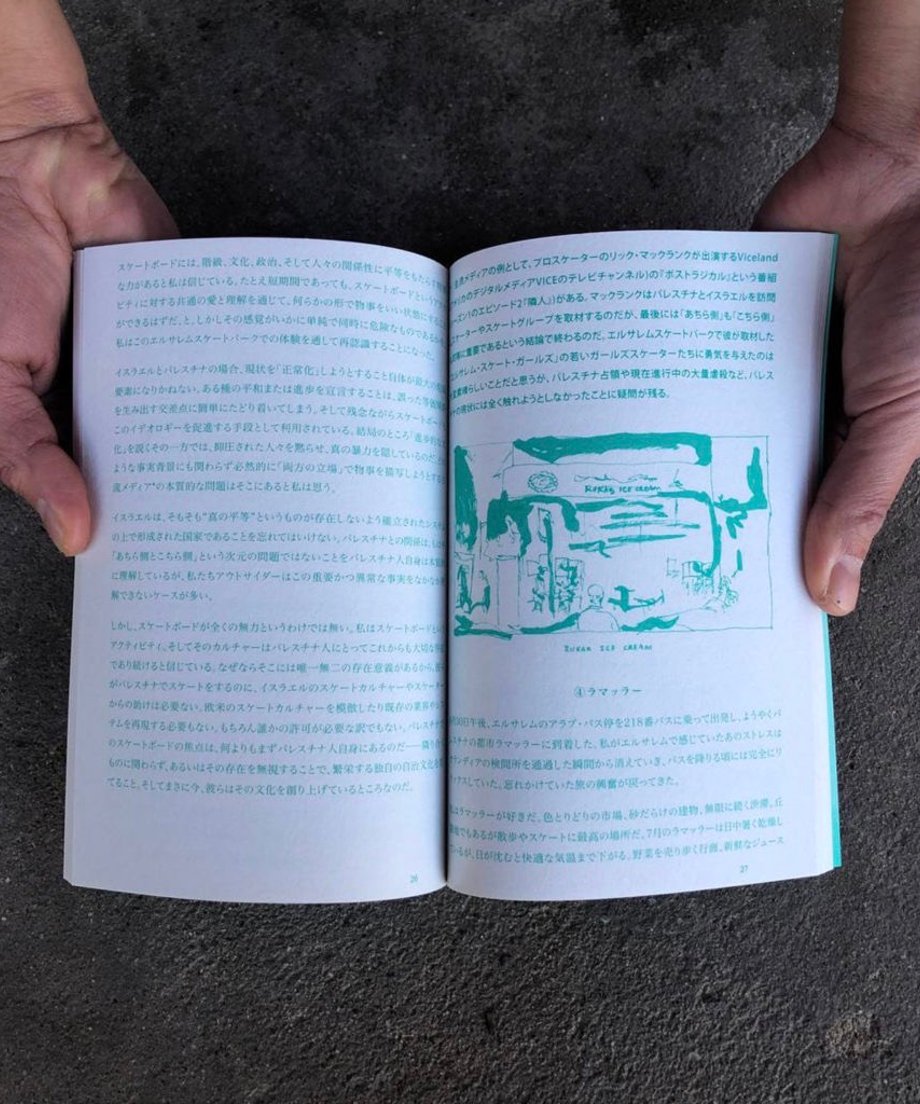 スケートボードには、階級、文化、政治、そして人々の関係性に平等をもたらす
な力があると私は信じている。たとえ短期間であっても、スケートボードというアク
ビティに対する共通の愛と理解を通じて、何らかの形で物事をいい状態にする
ができるはずだ、と。しかしその感覚がいかに単純で同時に危険なものであるか
私はこのエルサレムスケートパークでの体験を通して再認識することになった。
イスラエルとパレスチナの場合、現状を「正常化」しようとすること自体が最大の
要素になりかねない。ある種の平和または進歩を宣言することは、誤った等価
を生み出す交差点に簡単にたどり着いてしまう。そして残念ながらスケートボー
このイデオロギーを促進する手段として利用されている。結局のところ「進歩的な
化」を説くその一方では、抑圧された人々を黙らせ、真の暴力を隠しているのだ。
ような事実背景にも関わらず必然的に「両方の立場」で物事を描写しようとする
流メディア*の本質的な問題はそこにあると私は思う。
イスラエルは、そもそも“真の平等”というものが存在しないよう確立されたシス
の上で形成された国家であることを忘れてはいけない。パレスチナとの関係は、
「あちら側とこちら側」という次元の問題ではないことをパレスチナ人自身は本質
に理解しているが、私たちアウトサイダーはこの重要かつ異常な事実をなかなか
解できないケースが多い。
しかし、スケートボードが全くの無力というわけでは無い。私はスケートボードとい
アクティビティ、そしてそのカルチャーはパレスチナ人にとってこれからも大切な
であり続けると信じている。なぜならそこには唯一無二の存在意義があるから。
がパレスチナでスケートをするのに、イスラエルのスケートカルチャーやスケーター
からの助けは必要ない。欧米のスケートカルチャーを模倣したり既存の業界やシス
テムを再現する必要もない。もちろん誰かの許可が必要な訳でもない。パレスチナ
のスケートボードの焦点は、何よりもまずパレスチナ人自身にあるのだ——隣り合
ものに関わらず、あるいはその存在を無視することで、繁栄する独自の自治文化を
てること。そしてまさに今、彼らはその文化を創り上げているところなのだ。
26
主流メディアの例として、プロスケーターのリック・マックランクが出演するViceland
メリカのデジタルメディアVICEのテレビチャンネル)の『ポストラジカル』という番組
ーズン1のエピソード2「隣人」)がある。マックランクはパレスチナとイスラエルを訪問
ケーターやスケートグループを取材するのだが、最後には「あちら側」も「こちら側」
に重要であるという結論で終わるのだ。エルサレムスケートパークで彼が取材した
ルサレム・スケート・ガールズ」の若いガールズスケーターたちに勇気を与えたのは
素晴らしいことだと思うが、パレスチナ占領や現在進行中の大量虐殺など、パレス
の現状には全く触れようとしなかったことに疑問が残る。
RUKAB ICE CREAM
RUKAB ICE CREAM
④ラマッラー
30日午後、エルサレムのアラブ・バス停を218番バスに乗って出発し、ようやくパ
スチナの都市ラマッラーに到着した。私がエルサレムで感じていたあのストレスは
ランディアの検問所を通過した瞬間から消えていき、バスを降りる頃には完全にリ
ックスしていた。忘れかけていた旅の興奮が戻ってきた。
はラマッラーが好きだ。色とりどりの市場、砂だらけの建物、無限に続く渋滞。丘
でもあるが散歩やスケートに最高の場所だ。7月のラマッラーは日中暑く乾燥し
いるが、日が沈むと快適な気温まで下がる。野菜を売り歩く行商、新鮮なジュース
27